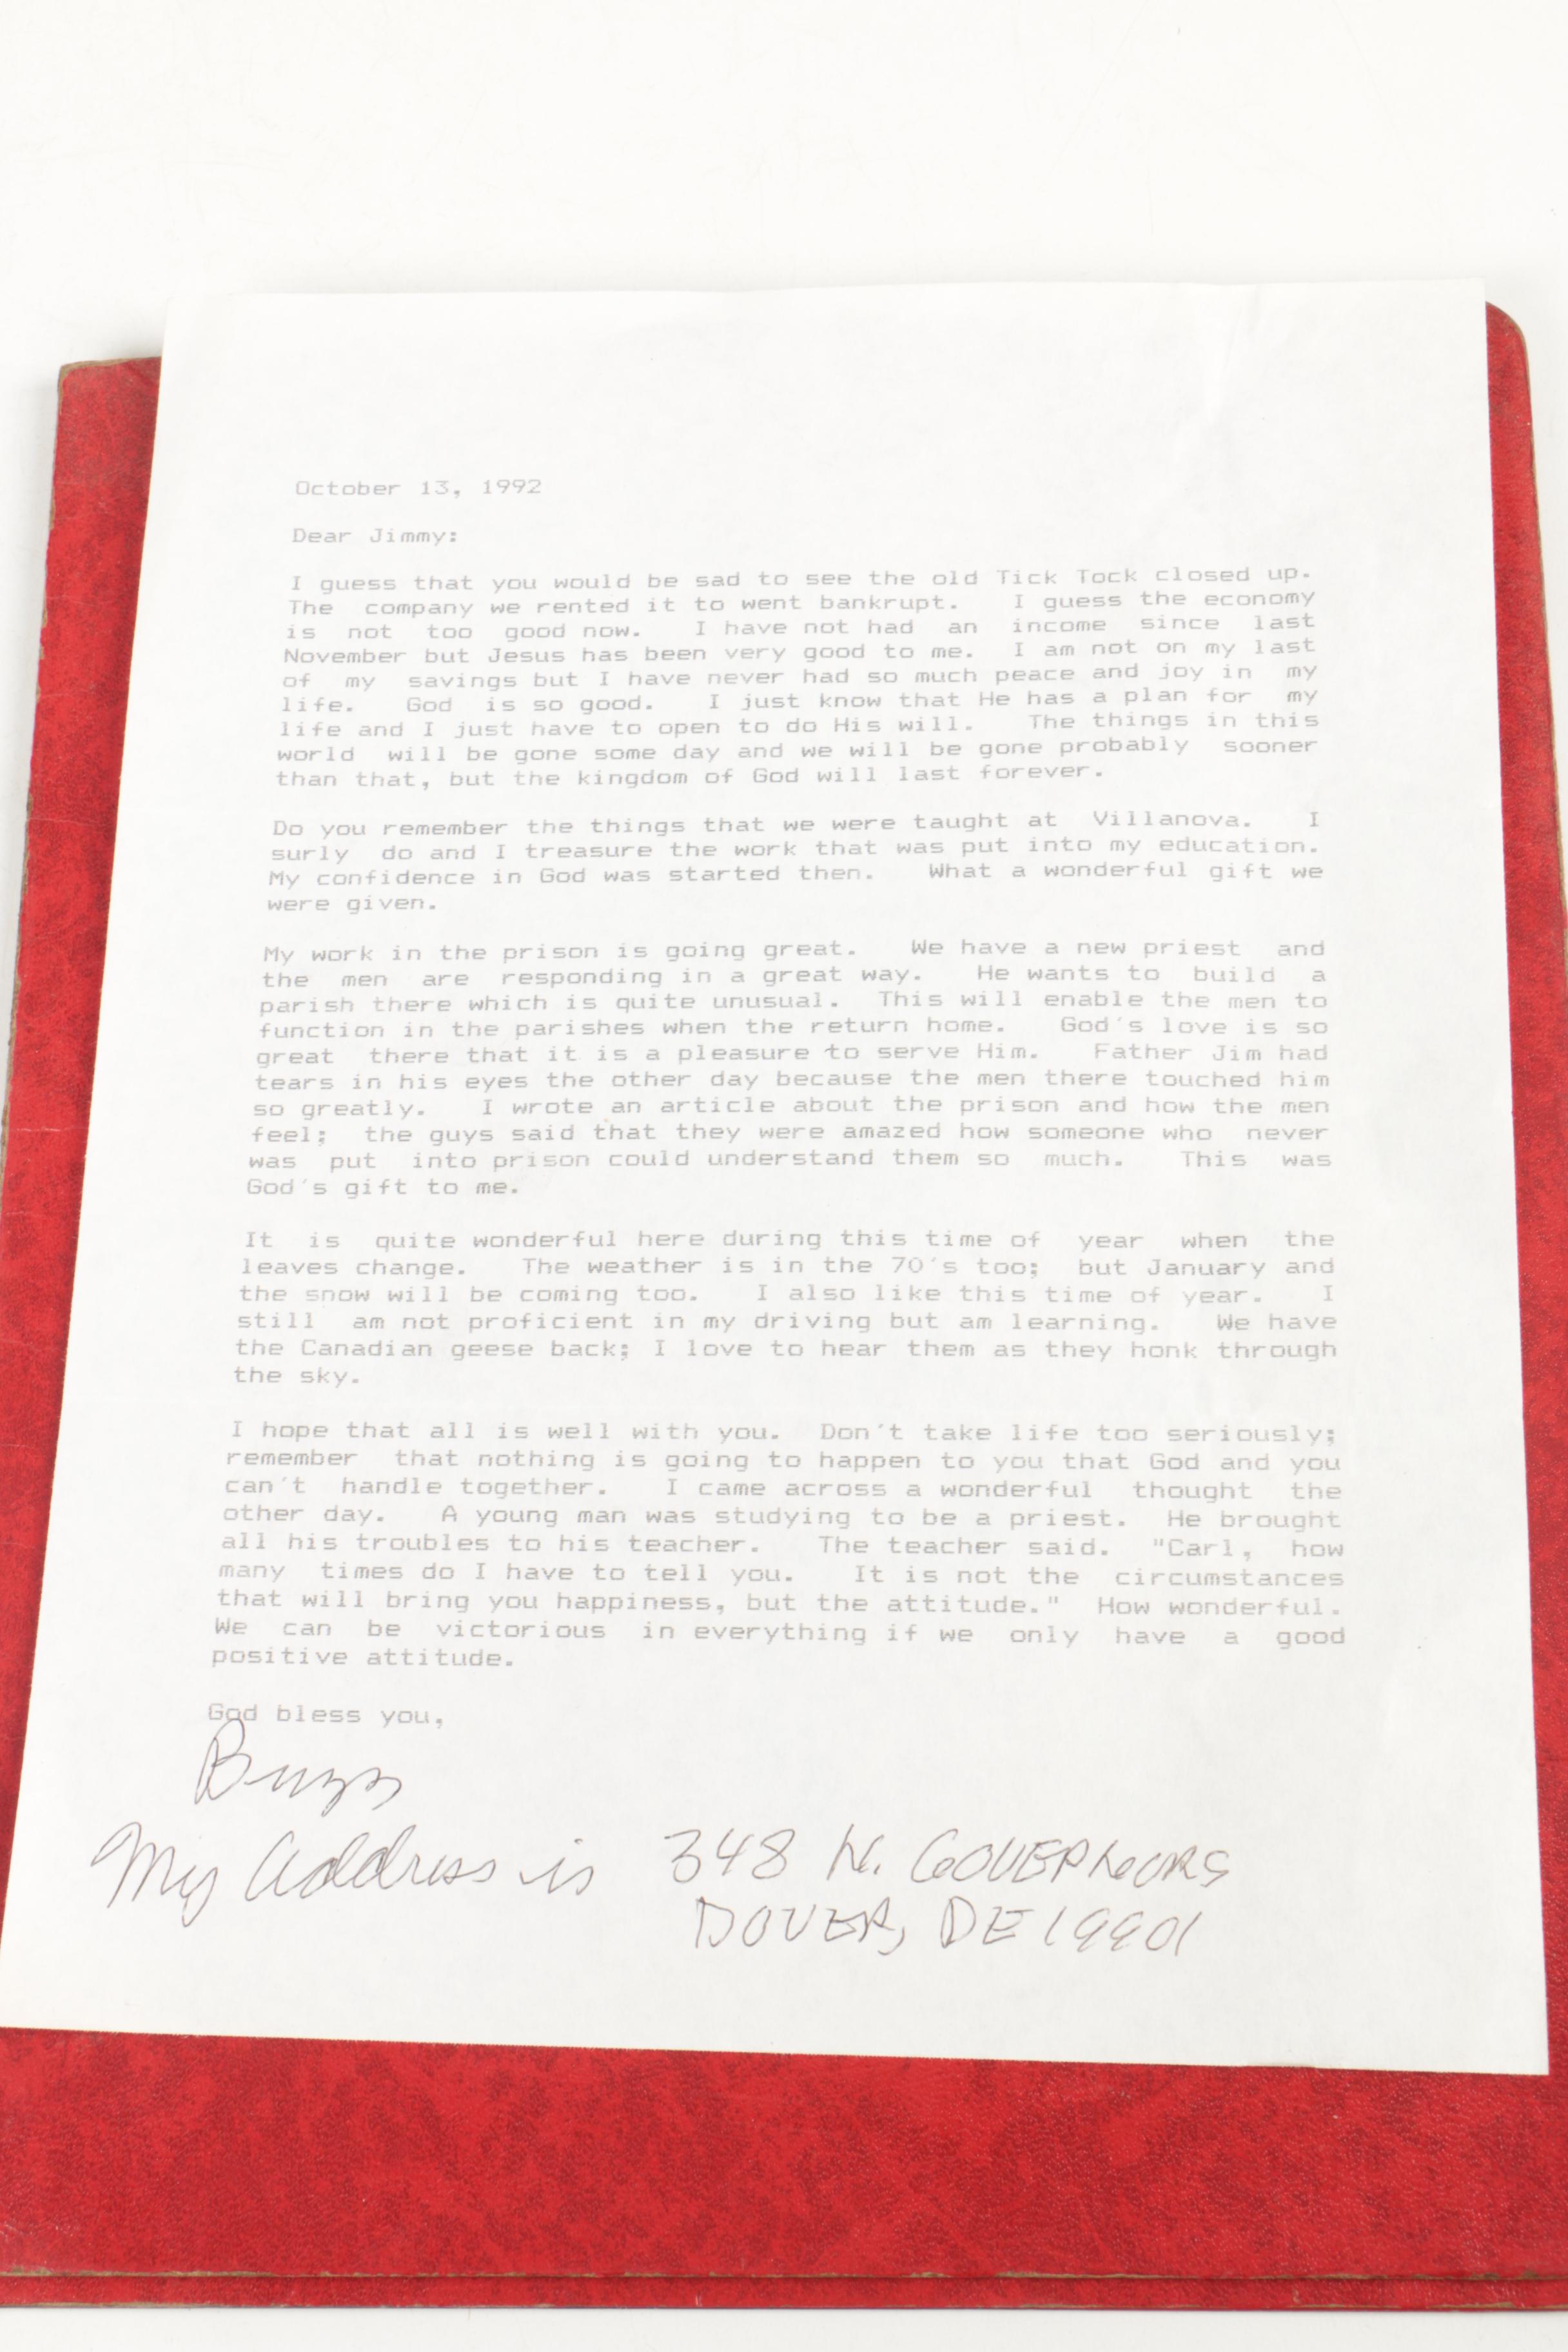 October 13, 1992
Dear Jimmy:
I guess that you would be sad to see the old Tick Tock closed up.
The company we rented it to went bankrupt. I guess the economy
is not too good now. I have not had an income since last
November but Jesus has been very good to me. I am not on my last
of my savings but I have never had so much peace and joy in my
life. God is so good. I just know that He has a plan for my
life and I just have to open to do His will. The things in this
world will be gone some day and we will be gone probably sooner
than that, but the kingdom of God will last forever.
Do you remember the things that we were taught at Villanova. I
surly do and I treasure the work that was put into my education.
My confidence in God was started then. What a wonderful gift we
were given.
My work in the prison is going great. We have a new priest and
the men are responding in a great way. He wants to build a
parish there which is quite unusual. This will enable the men to
function in the parishes when the return home. God's love is so
great there that it is a pleasure to serve Him. Father Jim had
tears in his eyes the other day because the men there touched him
so greatly. I wrote an article about the prison and how the men
feel; the guys said that they were amazed how someone who never
was put into prison could understand them so much. This was
God's gift to me.
It is quite wonderful here during this time of year when the
leaves change. The weather is in the 70's too; but January and
the snow will be coming too. I also like this time of year. I
still am not proficient in my driving but am learning. We have
the Canadian geese back; I love to hear them as they honk through
the sky.
I hope that all is well with you. Don't take life too seriously;
remember that nothing is going to happen to you that God and you
can't handle together. I came across a wonderful thought the
other day. A young man was studying to be a priest. He brought
all his troubles to his teacher. The teacher said. "Carl, how
many times do I have to tell you. It is not the circumstances
that will bring you happiness, but the attitude." How wonderful.
We can be victorious in everything if we only have a good
positive attitude.
God bless you,
Buzz
My Address is 348 N. GOVERNORS
DOVER, DE 19901